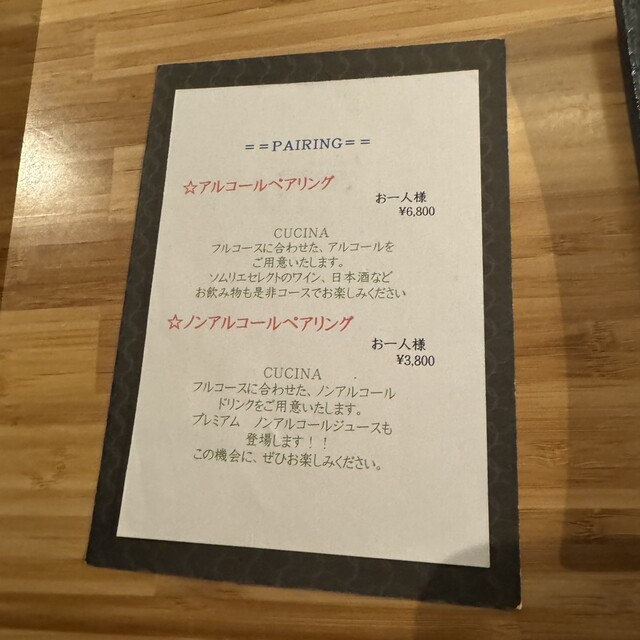 ==PAIRING==
☆アルコールペアリング
お一人様
¥6,800
CUCINA
フルコースに合わせた、アルコールを
ご用意いたします。
ソムリエセレクトのワイン、日本酒など
お飲み物も是非コースでお楽しみください
☆ノンアルコールペアリング
お一人様
¥3,800
CUCINA
フルコースに合わせた、ノンアルコール
ドリンクをご用意いたします。
プレミアム　ノンアルコールジュースも
登場します！！
この機会に、ぜひお楽しみください。